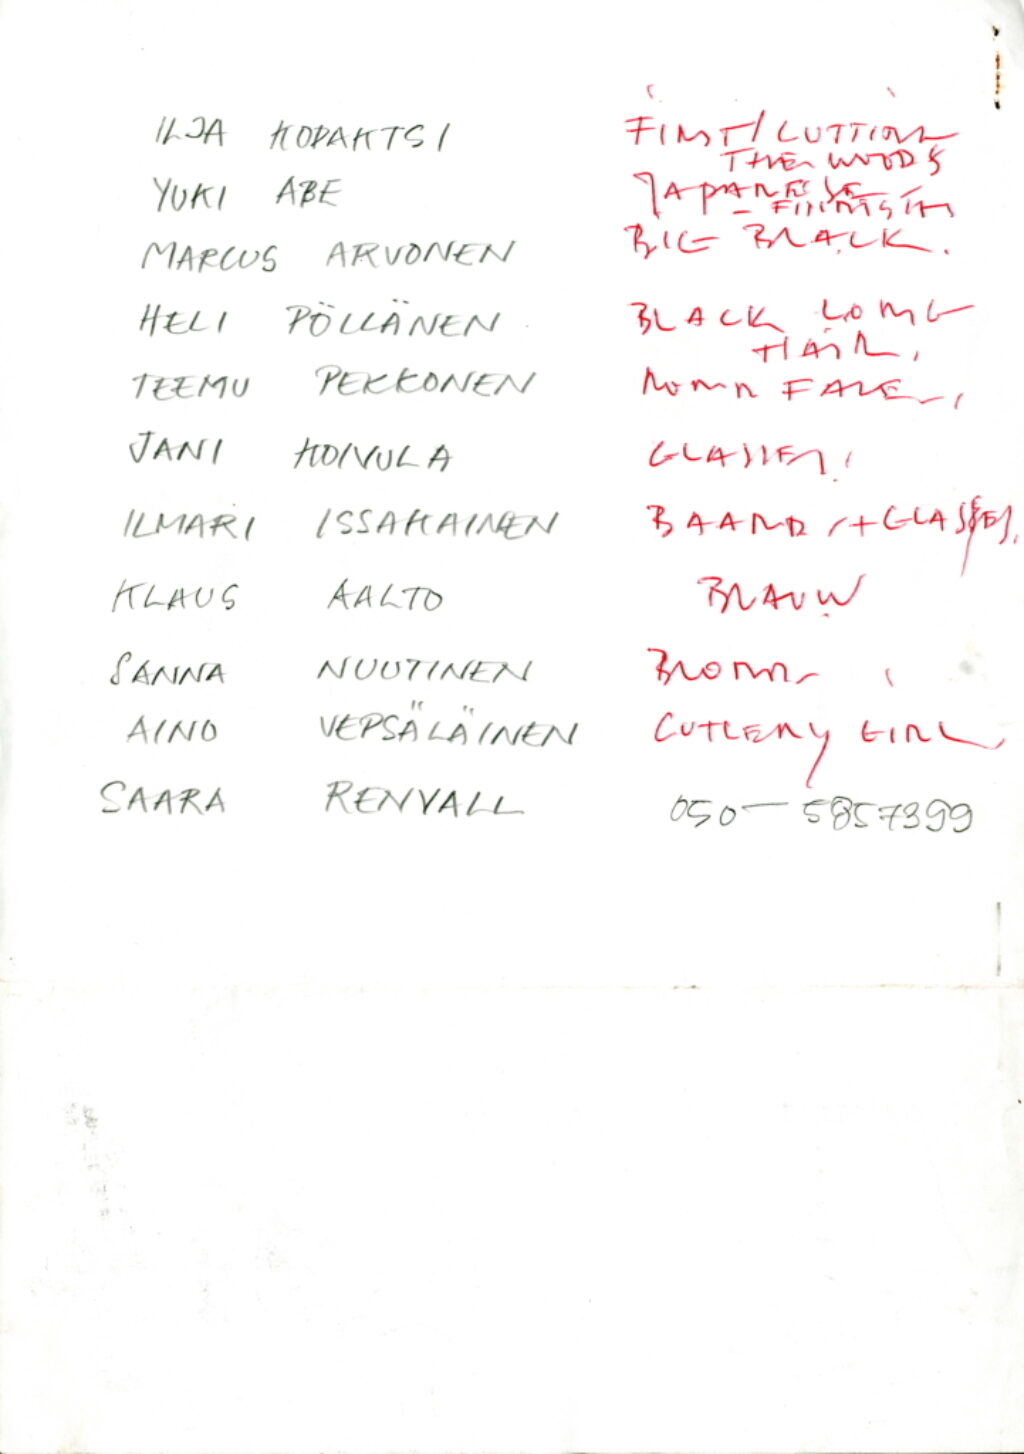 ILJA KODAKTSI FIRST/CUTTION
THE WOODS
YUKI ABE JAPANESE
- FINNISH
MARCUS ARVONEN BIG BLACK.
HELI PÖLLÄNEN BLACK LONG
HAIR,
TEEMU PEKKONEN FACE
JANI KOIVULA GLASSES,
ILMARI ISSAKAINEN BAARD /+ GLASSES,
KLAUS AALTO BLAUW
SANNA NUUTINEN
AINO VEPSÄLÄINEN CUTLERY GIRL
SAARA RENVALL 050-5857399